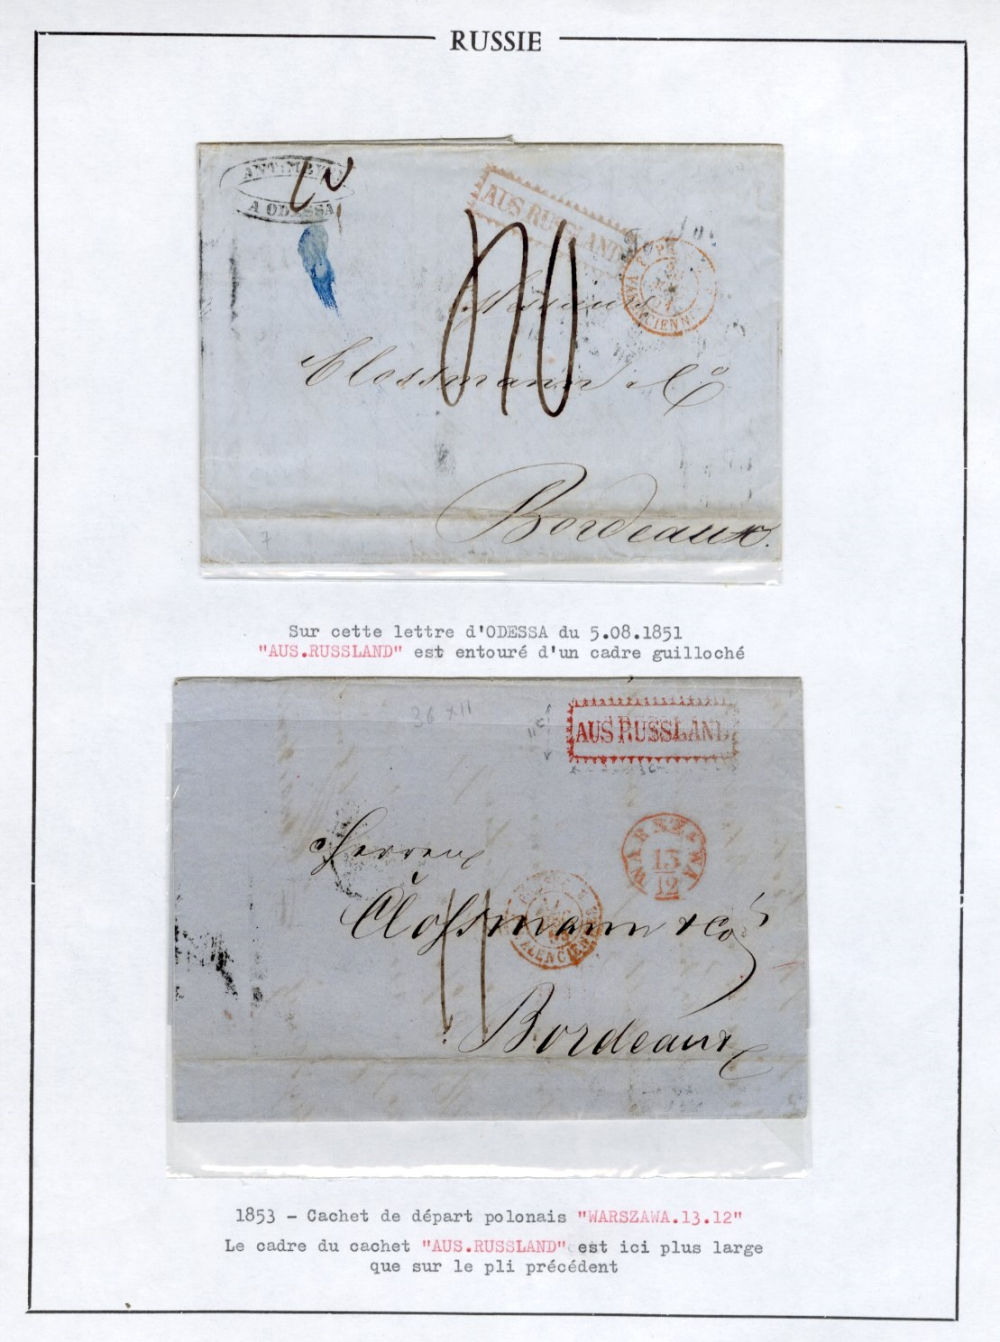 RUSSIE
A ODESSA
AUS RUSSLAND
VALENCIENN
Clossmann & Cº
Bordeaux.
Sur cette lettre d'ODESSA du 5.08.1851
"AUS.RUSSLAND" est entouré d'un cadre guilloché
36 x 11
AUS RUSSLAND
WARSZAWA
13
12
Herren
Clossmann & Co
VALENCIENNES
11
Bordeaux
1853 - Cachet de départ polonais "WARSZAWA.13.12"
Le cadre du cachet "AUS.RUSSLAND" est ici plus large
que sur le pli précédent